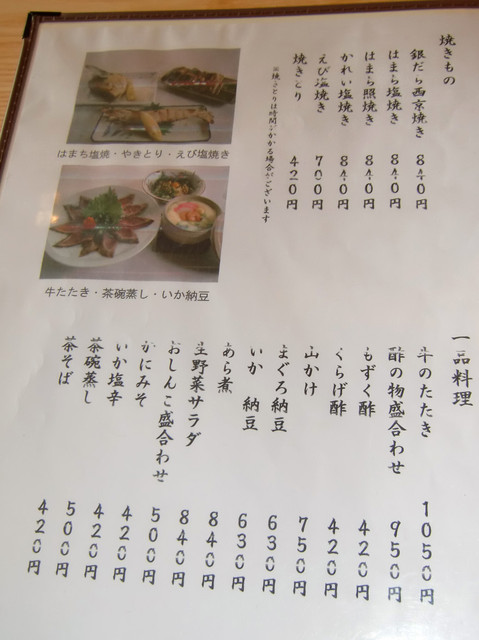 焼きもの
銀だら西京焼き 840円
はまち塩焼き 840円
はまち照焼き 840円
かれい塩焼き 840円
えび塩焼き 700円
焼きとり 420円
※焼きとりは時間がかかる場合がございます
はまち塩焼・やきとり・えび塩焼き
牛たたき・茶碗蒸し・いか納豆
一品料理
牛のたたき 1050円
酢の物盛合わせ 950円
もずく酢 420円
くらげ酢 420円
山かけ 750円
まぐろ納豆 630円
いか納豆 630円
あら煮 840円
生野菜サラダ 840円
おしんこ盛合わせ 500円
かにみそ 420円
いか塩辛 420円
茶碗蒸し 500円
茶そば 420円